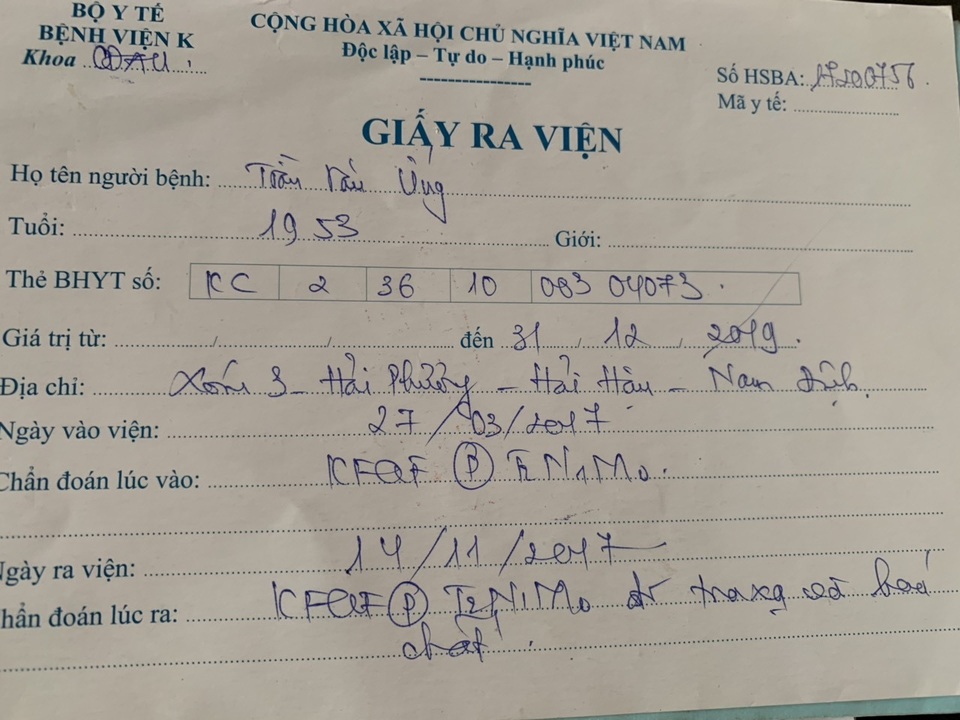 BỘ Y TẾ
BỆNH VIỆN K
Khoa
CỘNG HÒA XÃ HỘI CHỦ NGHĨA VIỆT NAM
Độc lập – Tự do – Hạnh phúc
Số HSBA: 17200756.
Mã y tế:
GIẤY RA VIỆN
Họ tên người bệnh: Trần Văn Ứng
Tuổi: 1953 Giới:
Thẻ BHYT số: KC 2 36 10 083 04073.
Giá trị từ: / / đến 31 / 12 / 2019.
Địa chỉ: Xóm 3 - Hải Phương - Hải Hậu - Nam Định.
Ngày vào viện: 27/03/2017
Chẩn đoán lúc vào: P N1M0.
Ngày ra viện: 14/11/2017
Chẩn đoán lúc ra: P T2N1M0 đt và hoá
chất.